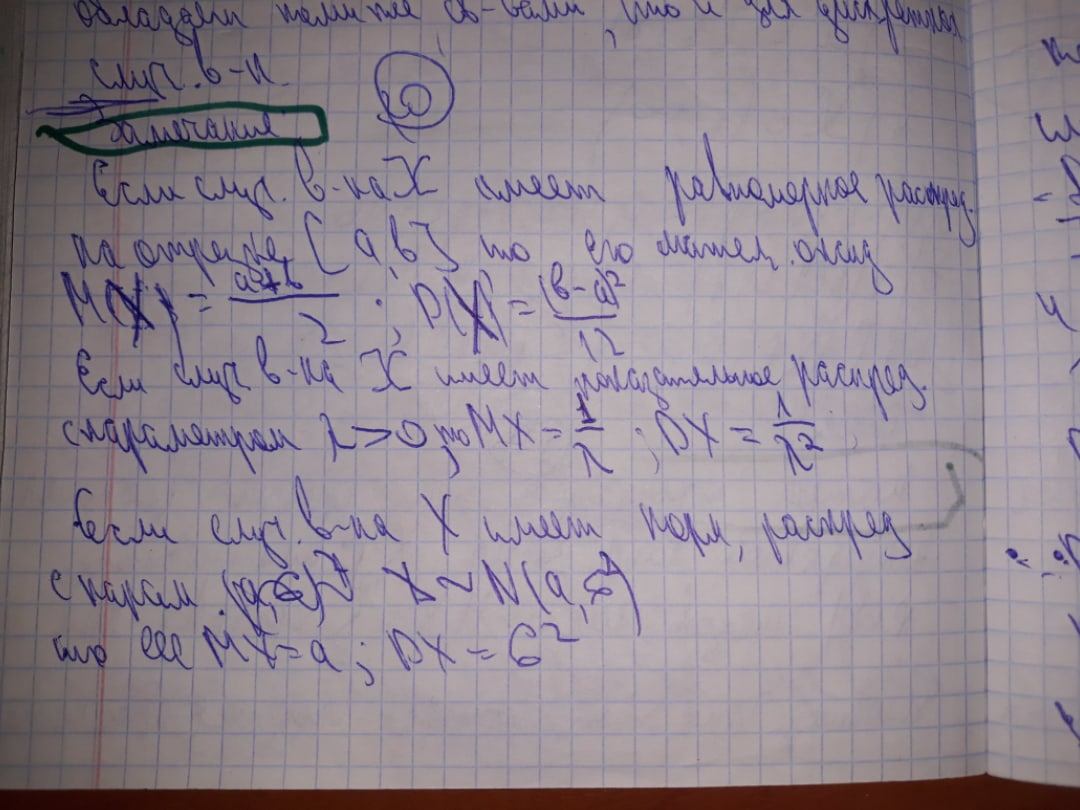 обладает теми же св-вами, что и для дискретной
случ. в-н.
20
Замечание
Если случ. в-на X имеет равномерное распред.
на отрезке [a, b] то его матем. ожид
M(X) = a+b/2 ; D(X) = (b-a)²/12
Если случ. в-на X имеет показательное распред.
с параметром λ>0, то MX = 1/λ ; DX = 1/λ²
Если случ. в-на X имеет норм, распред
с парам. X ~ N(a,
то её MX = a ; DX = б²